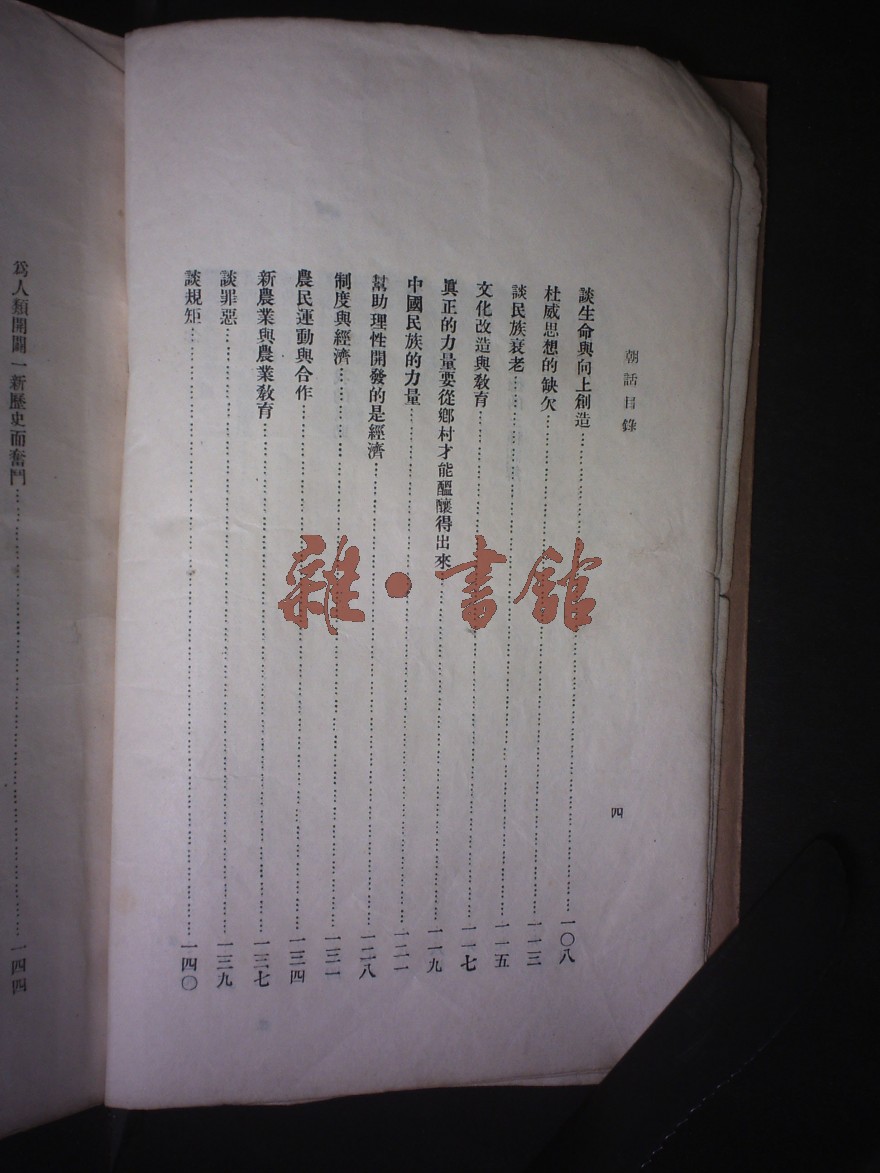 朝話目錄
四
談生命與向上創造……一〇八
杜威思想的缺欠……一一三
談民族衰老……一一五
文化改造與教育……一一七
眞正的力量要從鄉村才能醞釀得出來……一一九
中國民族的力量……一二一
幫助理性開發的是經濟……一二八
制度與經濟……一三一
農民運動與合作……一三四
新農業與農業教育……一三七
談罪惡……一三九
談規矩……一四〇
爲人類開闢一新歷史而奮鬥……一四四
雜·書館